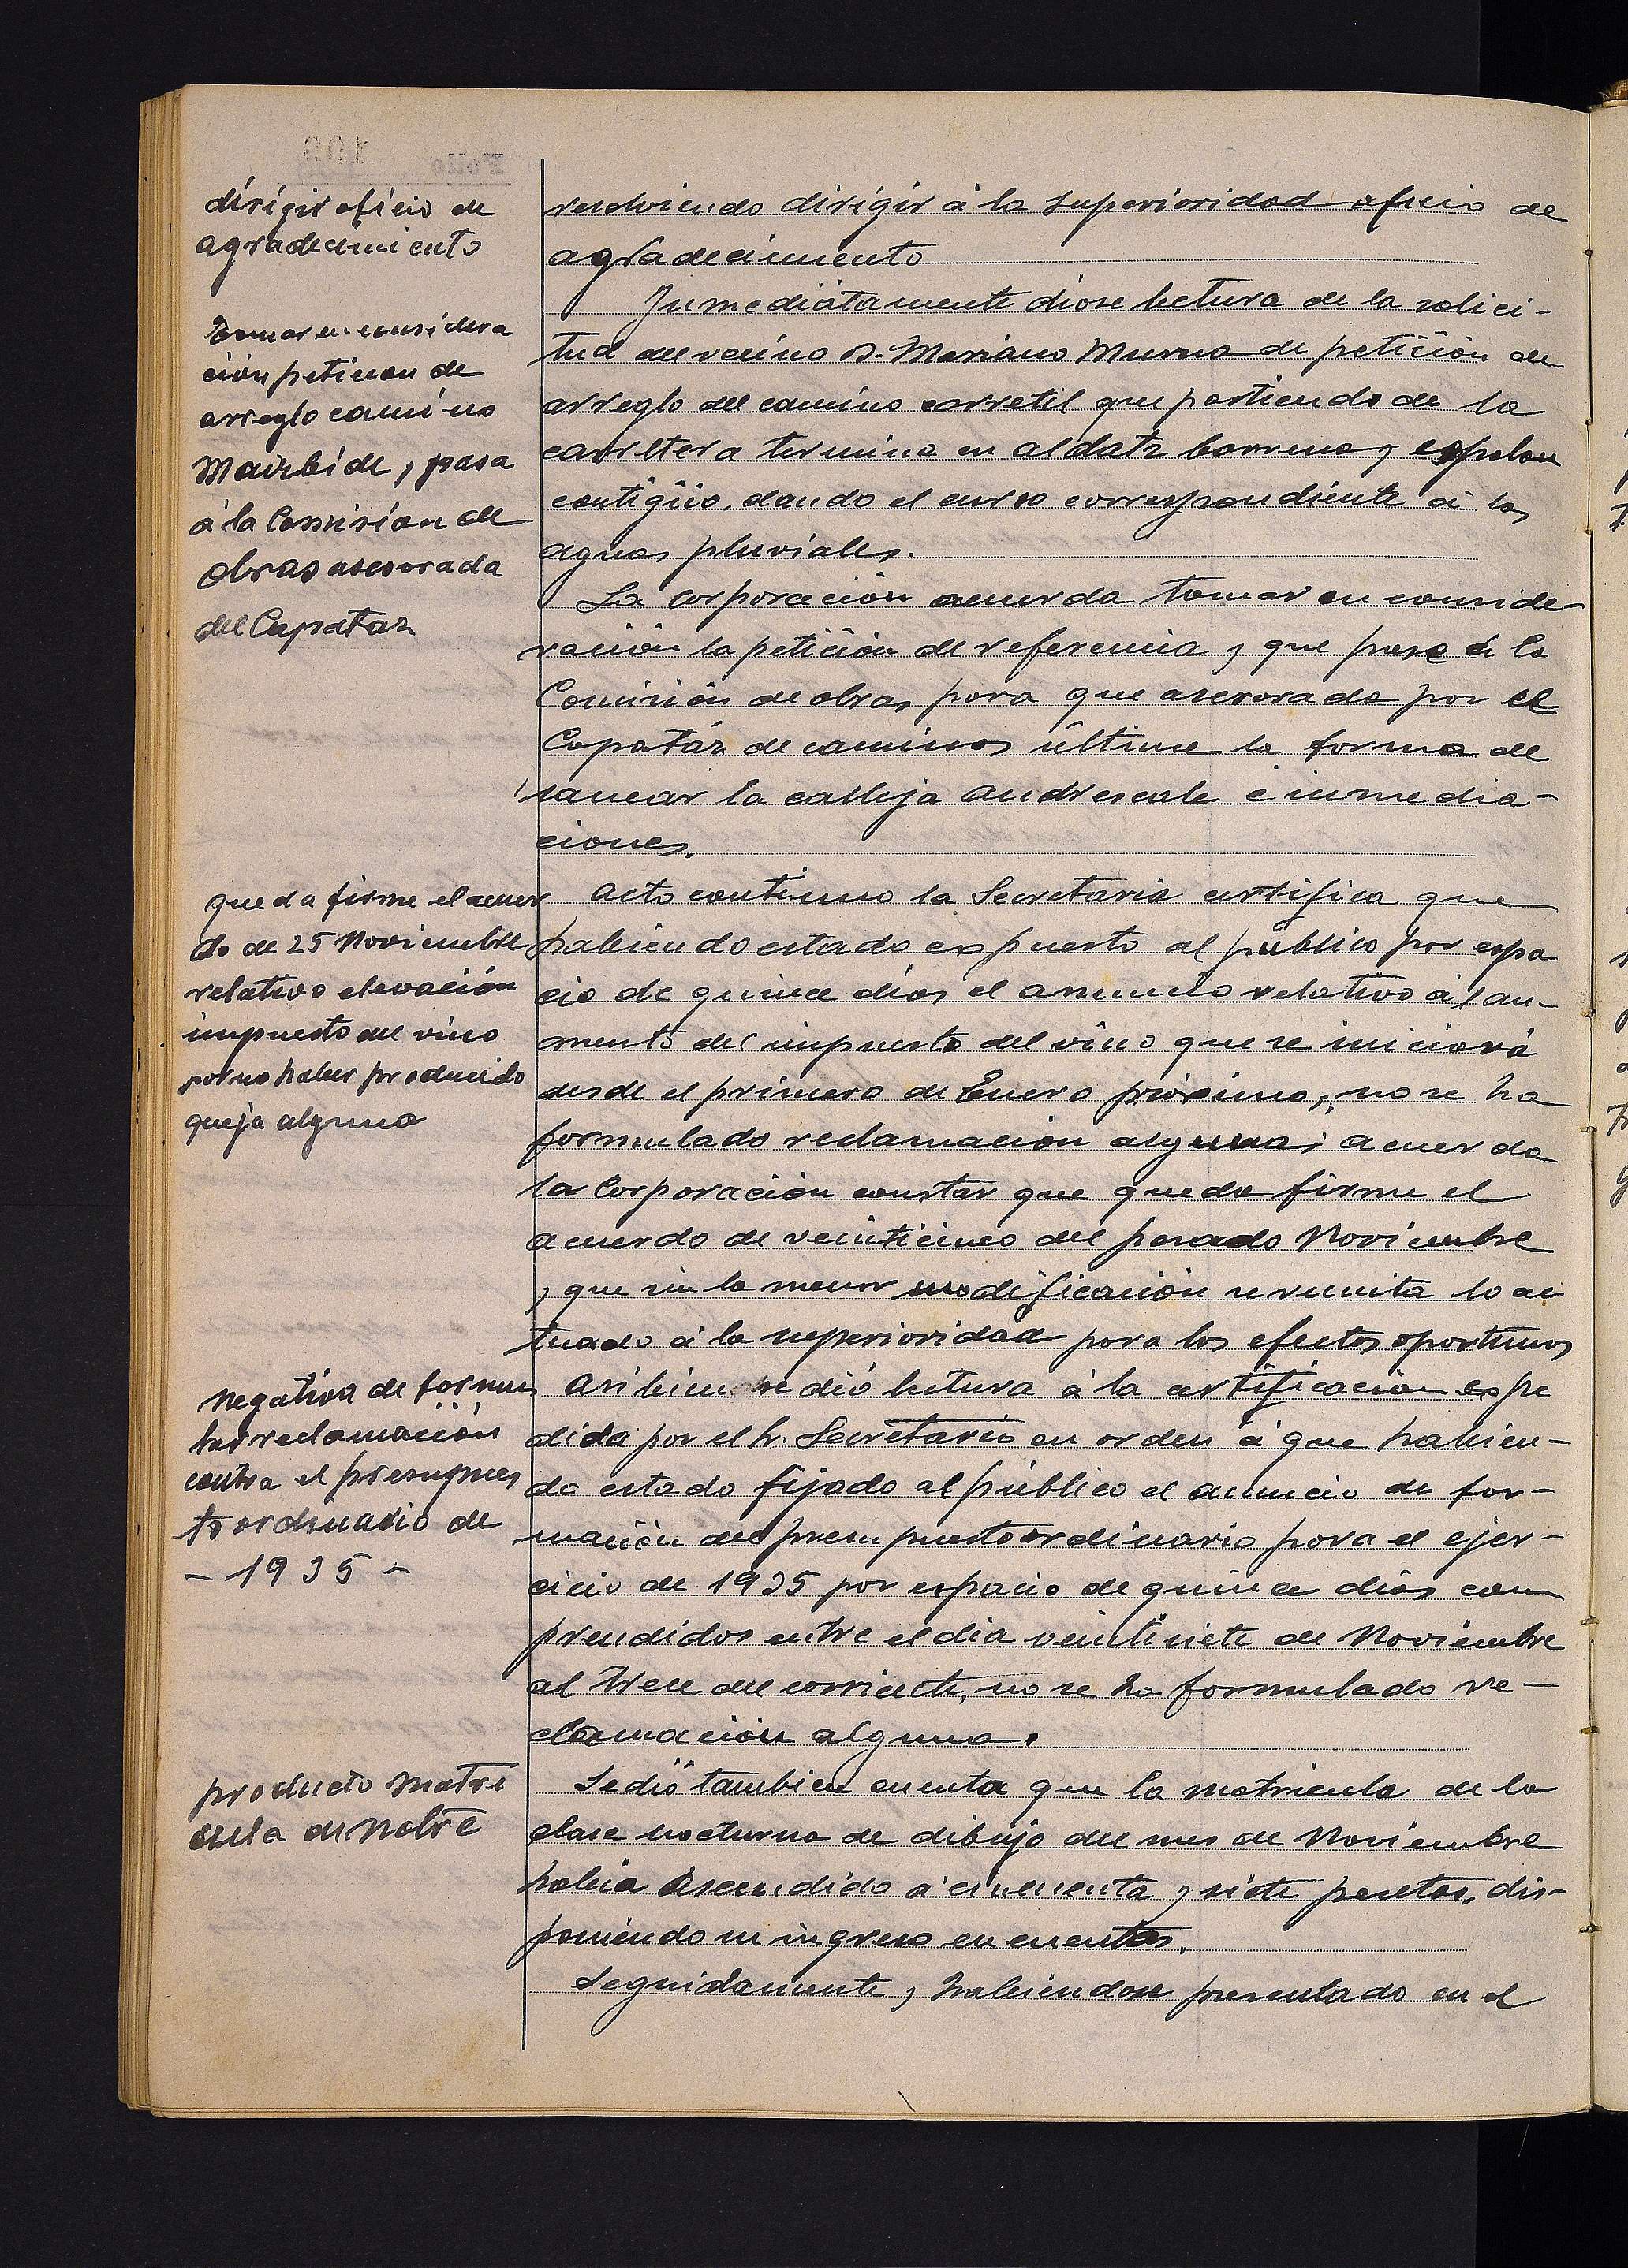 dirigir oficio de
agradecimiento
resolviendo dirigir á la superioridad oficio de
agradecimiento
Tomar en considera
ción peticion de
arreglo camino
Maizbide, pasa
á la Comision de
obras asesorada
del Capataz
Inmediatamente diose lectura de la solici-
tud del vecino D. Mariano Murua de petición de
arreglo del camino carretil que partiendo de la
carretera termina en aldatz barrena y espolon
contigüo, dando el curso correspondiente á las
aguas pluviales.
La corporación acuerda tomar en conside-
ración la petición de referencia y que pase á la
Comisión de obras para que asesorada por el
Capatáz de caminos últime la forma de
sanear la calleja andrescale é inmedia-
ciones.
queda firme el acuer
do de 25 Noviembre
relativo elevación
impuesto del vino
por no haber producido
queja alguna
acto continuo la Secretaria certifica que
habiendo estado expuesto al público por espa
cio de quince días el anuncio relativo á l au-
mento del impuesto del vino que se iniciará
desde el primero de Enero próximo, no se ha
formulado reclamación alguna; acuerda
la Corporación constar que queda firme el
acuerdo de veinticinco del pasado Noviembre
y que sin la menor modificación se remita lo ac
tuado á la superioridad para los efectos oportunos
Negativa de formu
lar reclamación
contra el presupues
to ordinario de
- 1935 -
asi bien se dió lectura á la certificación expe
dida por el Sr. Secretario en orden á que habien-
do estado fijado al público el anuncio de for-
mación del presupuesto ordinario para el ejer-
cicio de 1935 por espacio de quince días com
prendidos entre el dia veintisiete de Noviembre
al trece del corriente, no se ha formulado re-
clamación alguna.
producto matri
cula de Nobre
Se dió tambien cuenta que la matricula de la
clase nocturna de dibujo del mes de Noviembre
habia ascendido á cincuenta y siete pesetas, dis-
poniendo su ingreso en cuentas.
Seguidamente y habiendose presentado en el